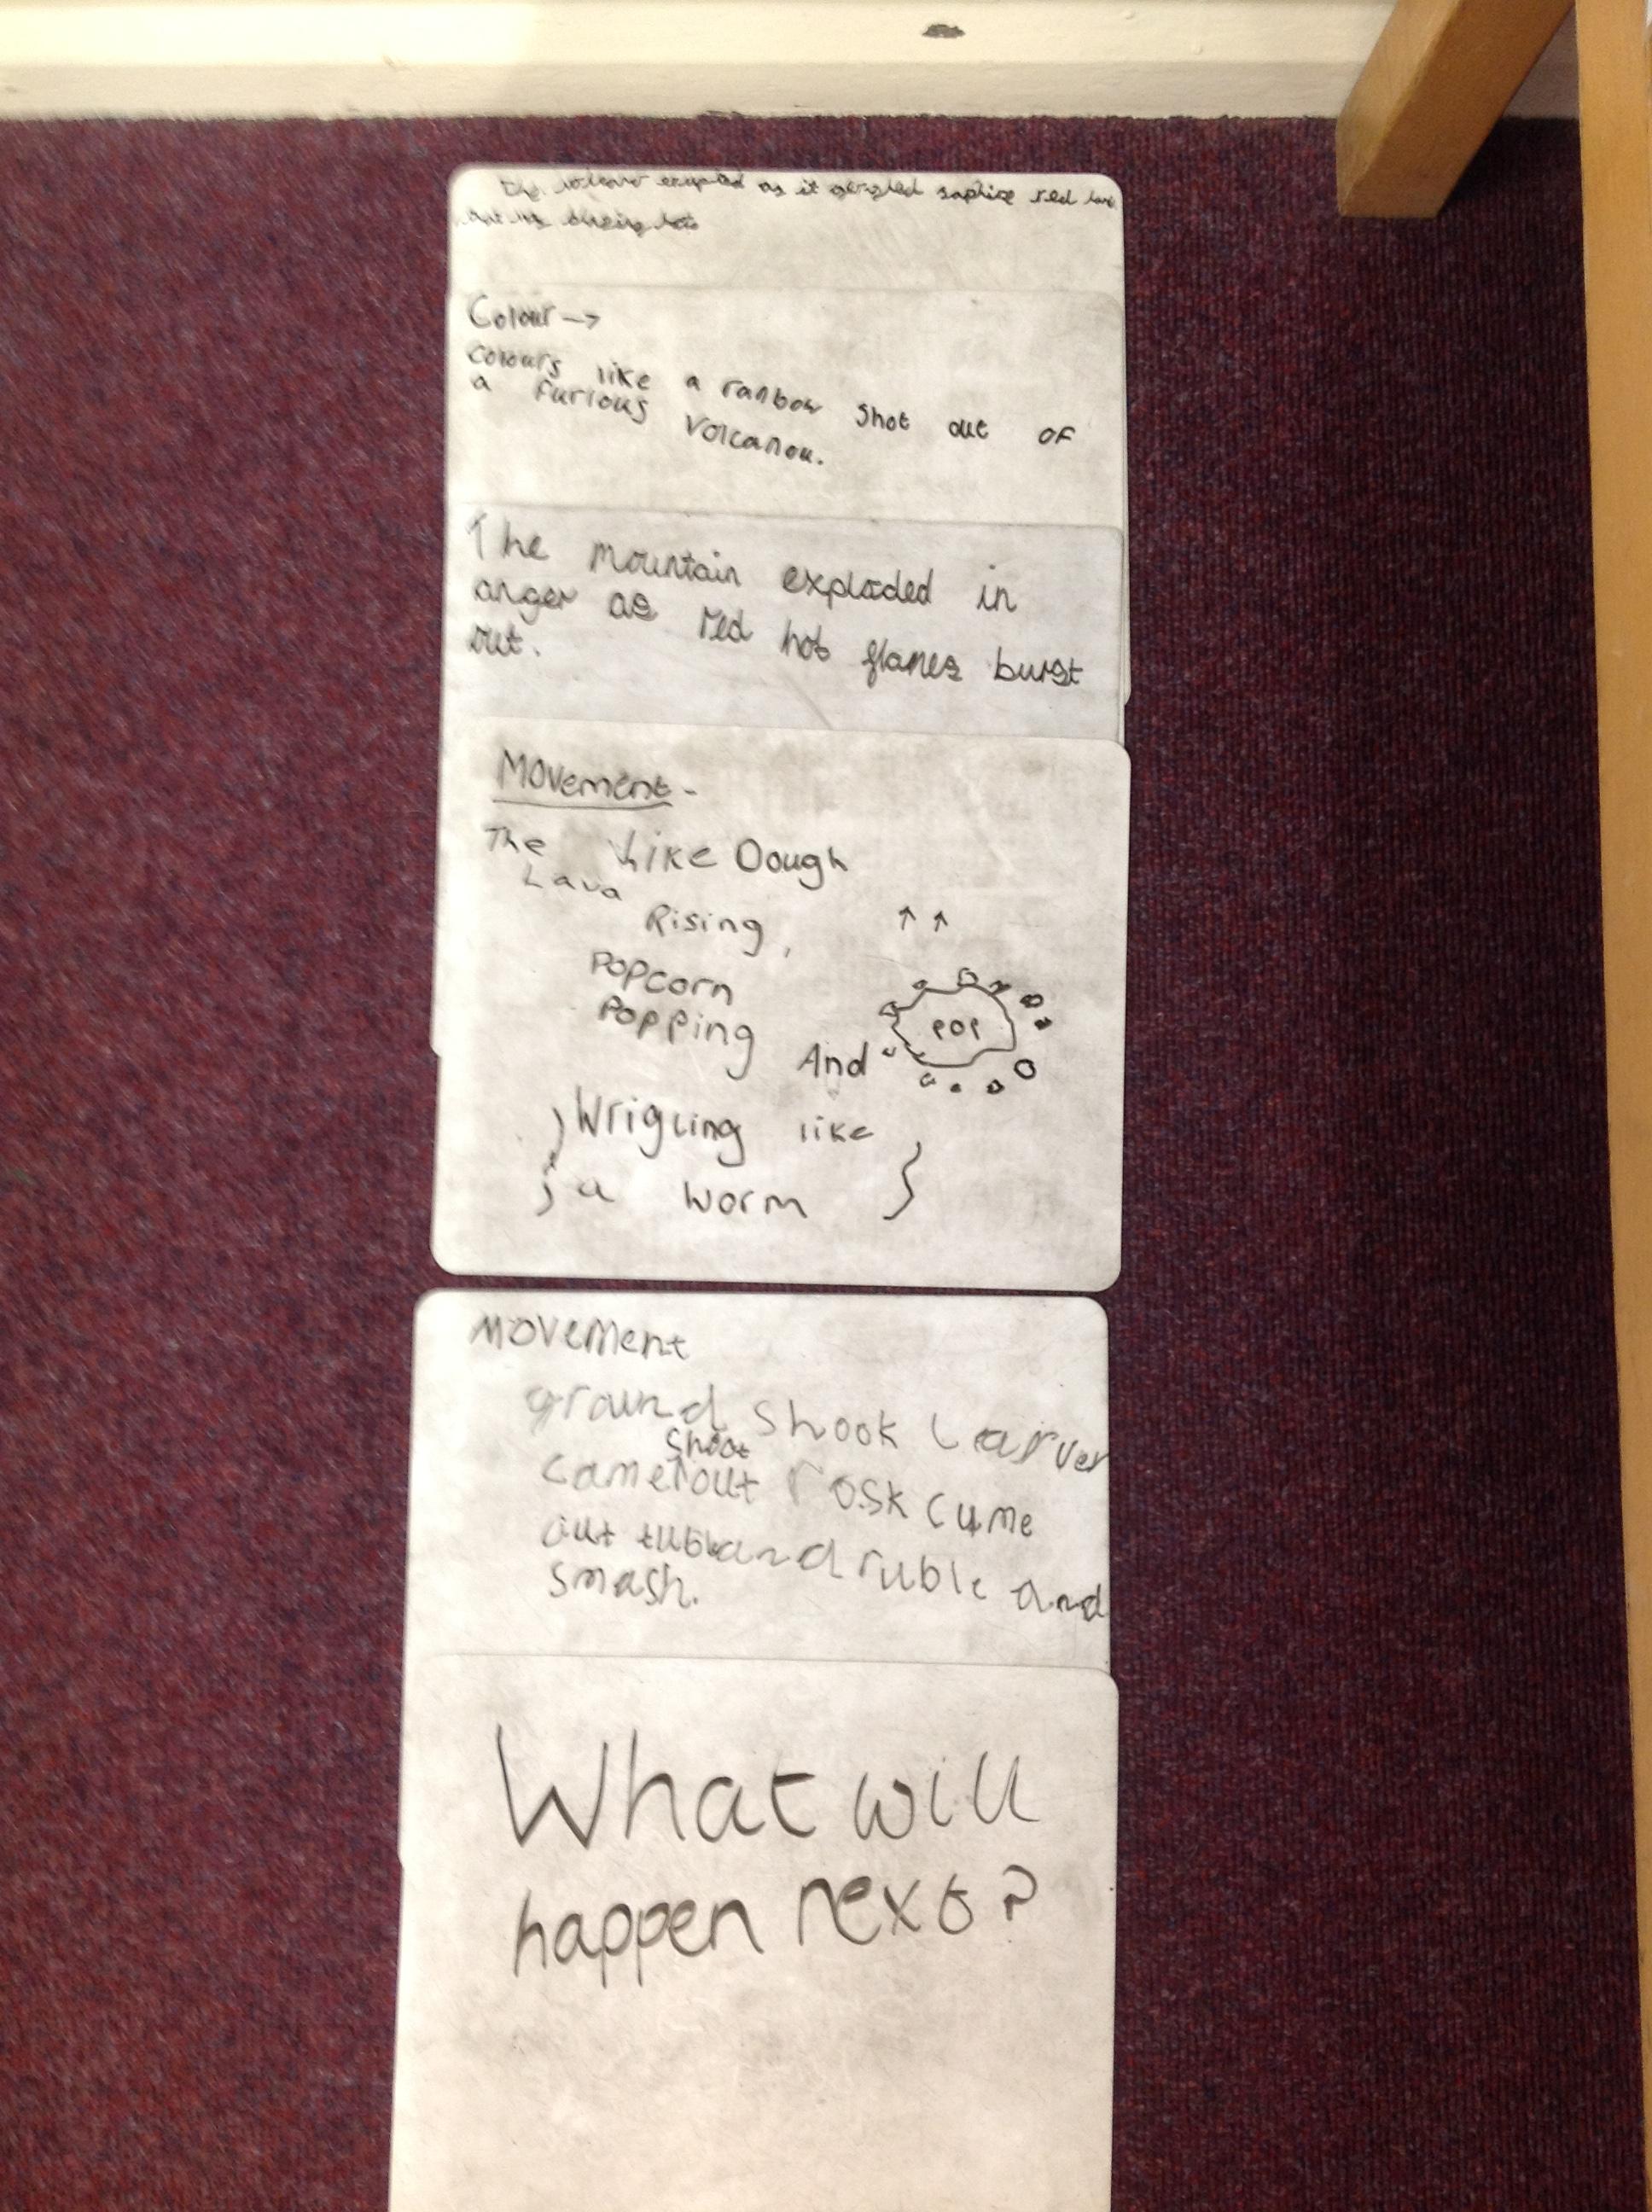 The volcano erupted as it gurgled saphire red lava
that was blazing hot
Colour →
Colours like a ranbow shot out of
a furious Volcanou.
The mountain exploded in
anger as red hot flames burst
out.
Movement -
The Like Dough
Lava
Rising,
Popcorn
Popping
POP
And
Wrigling like
a worm
Movement
ground shook Larver
shoot
came out rosk cume
out and ruble and
smash.
What will
happen next?